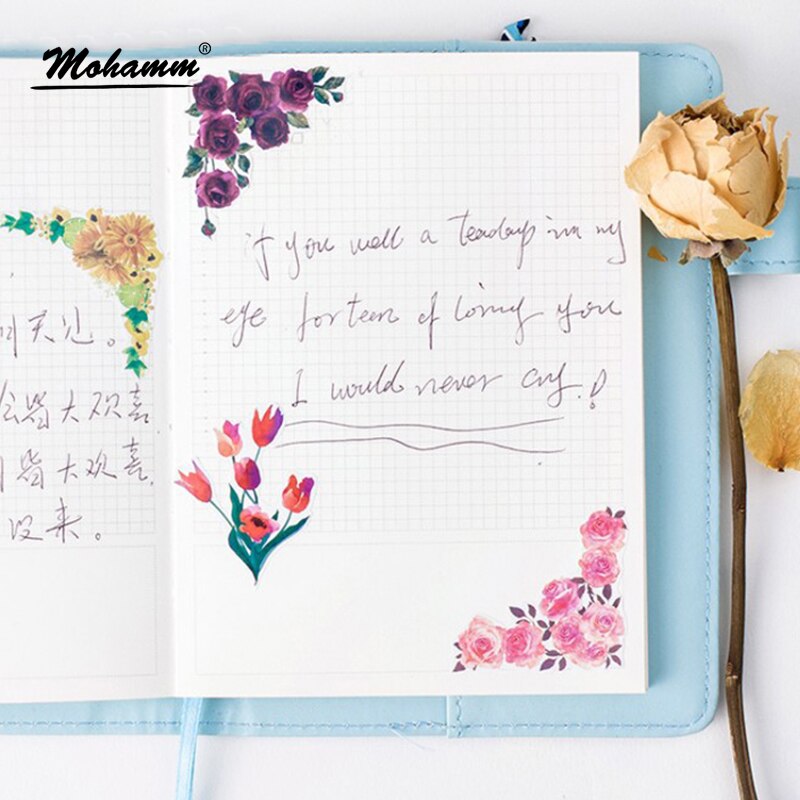 Mohamm®
if you well a teadrop in my
eye for teen of losing you
I would never cry!
天边。
皆大欢喜
皆大欢喜,
没来。